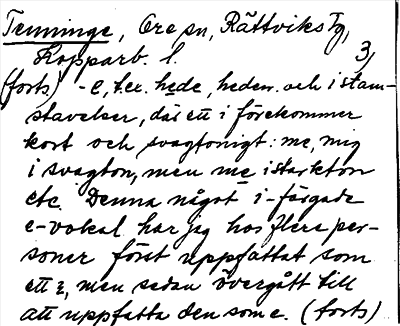 Tenninge, Ore sn, Rättviks Tg,
Kopparb. l. 3/
(forts) -e, t.ex. hede, heden och i stam-
stavelser, där ett i förekommer
kort och svagtonigt: me, mig
i svagton, men me i starkton
etc. Denna något i-färgade
e-vokal har jag hos flera per-
soner först uppfattat som
ett, men sedan övergått till
att uppfatta den som e. (forts)